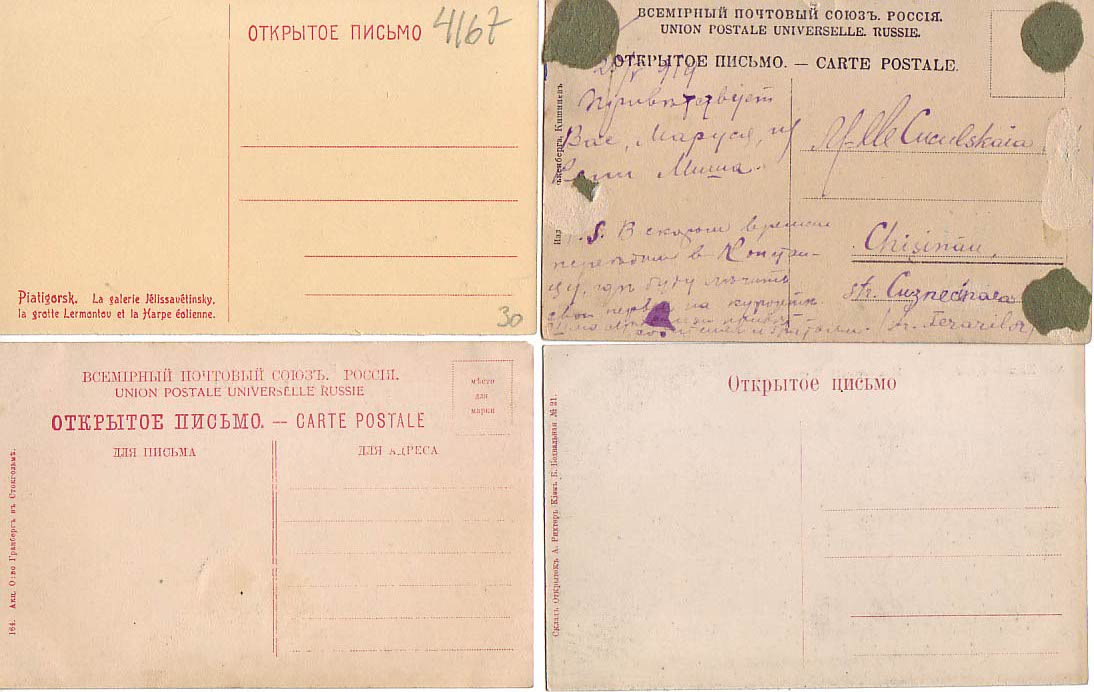 ОТКРЫТОЕ ПИСЬМО
4167
Piatigorsk. La galerie Jélissavêtinsky,
la grotte Lermontov et la Harpe éolienne.
30
ВСЕМІРНЫЙ ПОЧТОВЫЙ СОЮЗЪ. РОССІЯ.
UNION POSTALE UNIVERSELLE. RUSSIE.
ОТКРЫТОЕ ПИСЬМО. — CARTE POSTALE.
Кишиневъ
Привѣтствует
Вас, Маруся, и
Миша.
M-lle Cuculskaia
S. В скором времени
в
буду лѣчить
на курортѣ
Chişinău,
str. Cuznecinaia
ВСЕМІРНЫЙ ПОЧТОВЫЙ СОЮЗЪ. РОССІЯ.
UNION POSTALE UNIVERSELLE RUSSIE
ОТКРЫТОЕ ПИСЬМО. — CARTE POSTALE
мѣсто
для
марки
ДЛЯ ПИСЬМА
ДЛЯ АДРЕСА
164. Акц. О-во Гранбергъ въ Стокгольмѣ.
Открытое письмо
Складъ Открытокъ А. Рихтеръ Кіевъ Б. Подвальная № 21.